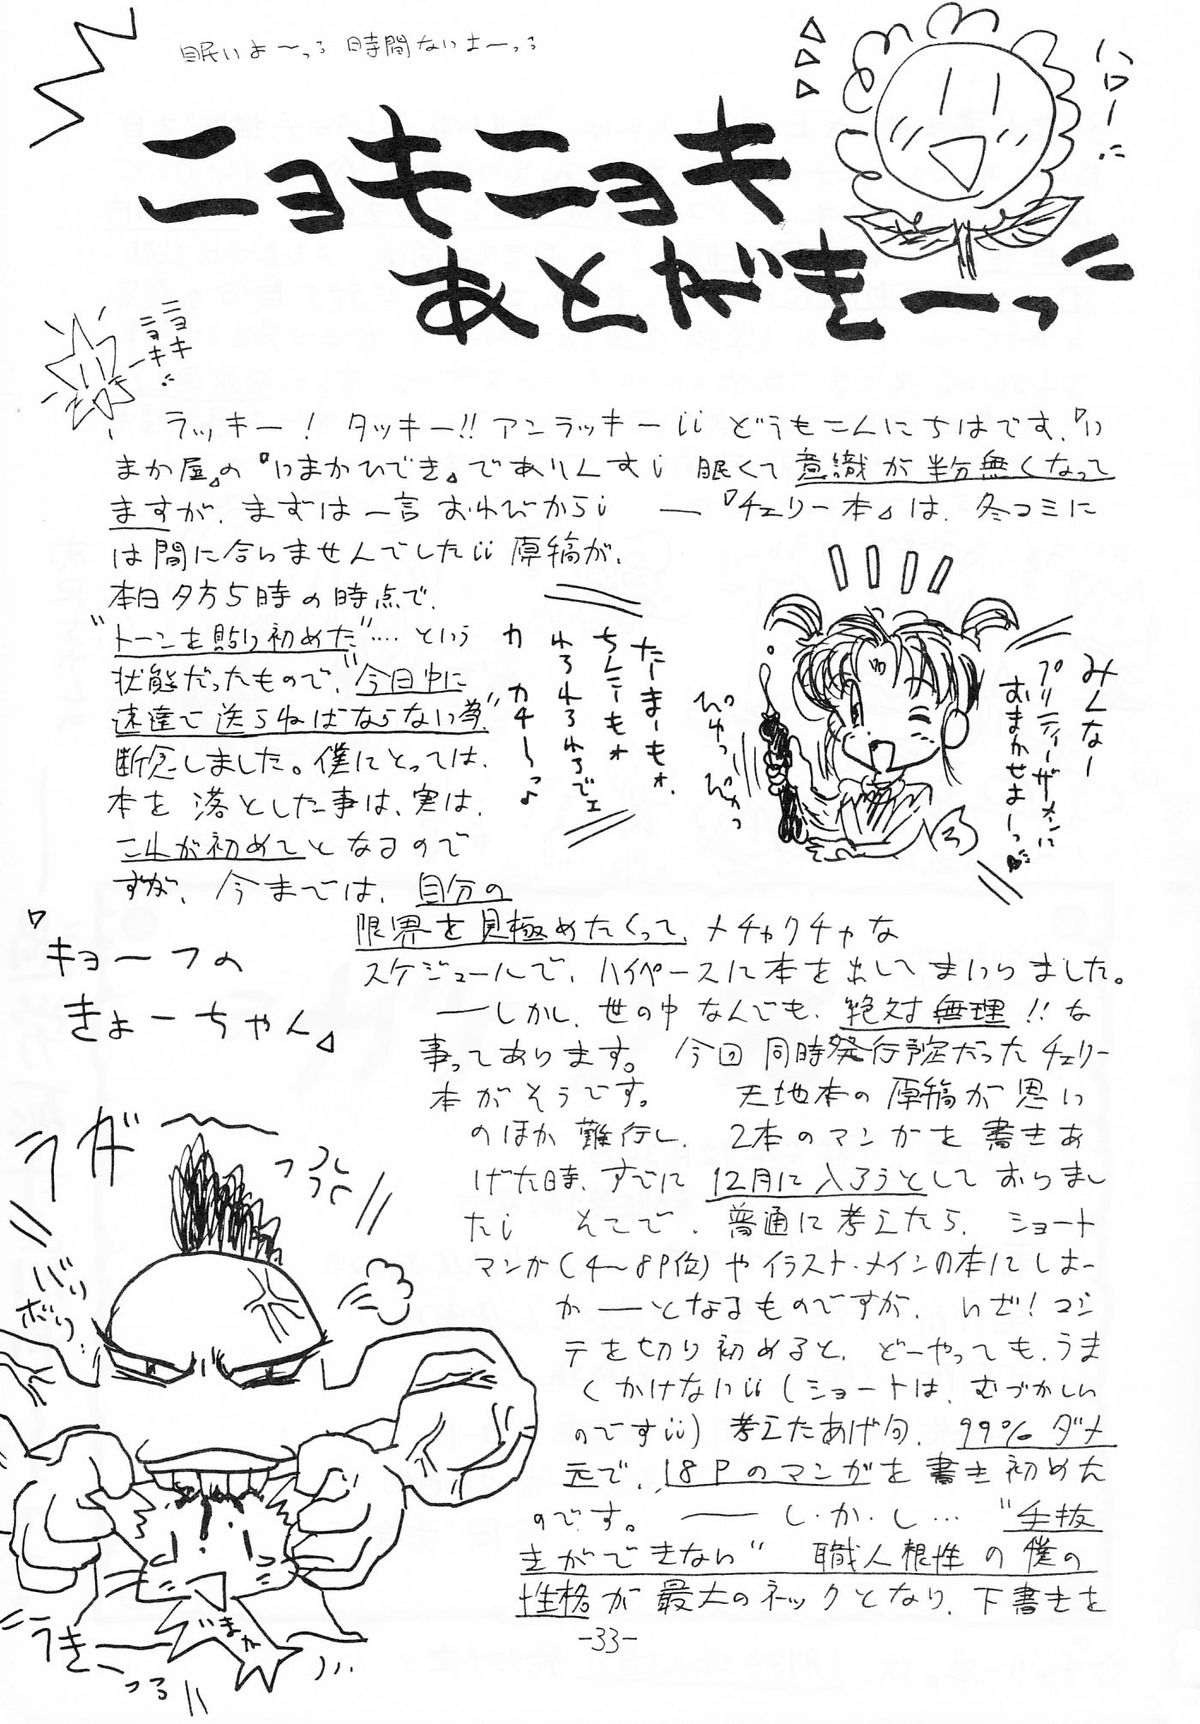 眠いよ〜っる 時間ないよーっる
ハロー!!
ニョキニョキ
あとがきーっ
ニョキ
ニョキー!!
ラッキー! タッキー!! アンラッキーii どうもこんにちはです、『い
まか屋』の『いまかひでき』でありんすi 眠くて意識が半分無くなって
ますが、まずは一言おわびからi ―『チェリー本』は、冬コミに
は間に合いませんでしたii 原稿が、
本日夕方5時の時点で、
"トーンを貼り初めた"…という
状態だったもので、"今日中に
速達で送らねばならない為"
断念しました。僕にとっては、
本を落とした事は、実は、
これが初めてとなるので
すが、今までは、自分の
限界を見極めたくって、メチャクチャな
スケジュールで、ハイペースに本を出してまいりました。
―しかし、世の中なんでも、絶対無理!!な
事ってあります。 今回同時発行予定だったチェリー
本がそうです。 天地本の原稿が思い
のほか難行し、2本のマンガを書きあ
げた時、すでに12月に入ろうとしておりまし
たi そこで、普通に考えたら、ショート
マンガ(4〜8P位)やイラスト・メインの本にしよー
か――となるものですが、いざ!コン
テを切り初めると、どーやっても、うま
くかけないii(ショートは、むづかしい
のですii)考えたあげ句、99%ダメ
元で、18Pのマンガを書き初めた
のです。 ―― し・か・し…"手抜
きができない"職人根性の僕の
性格が最大のネックとなり、下書きを
みんなー
プリティーザーメンに
おまかせよーっ♥
ぴゅっ
ぴゅっ
たーまーもォ、
ちんこーもォ
われわれわれでェ
カ カチ〜っ♪
『キョーフの
きょーちゃん』
ウガ〜
っる
バリ
ボリ
いまか
うきー
っる
-33-